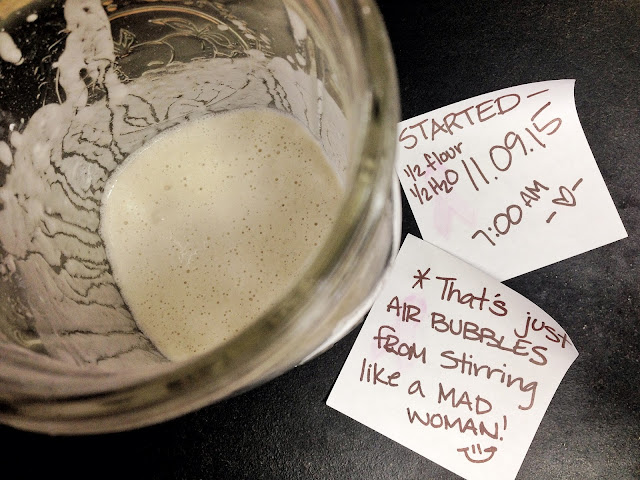 STARTED-
1/2 flour
1/2 H2O 11.09.15
7:00 AM
* That's just
AIR BUBBLES
FROM Stirring
like a MAD
WOMAN!